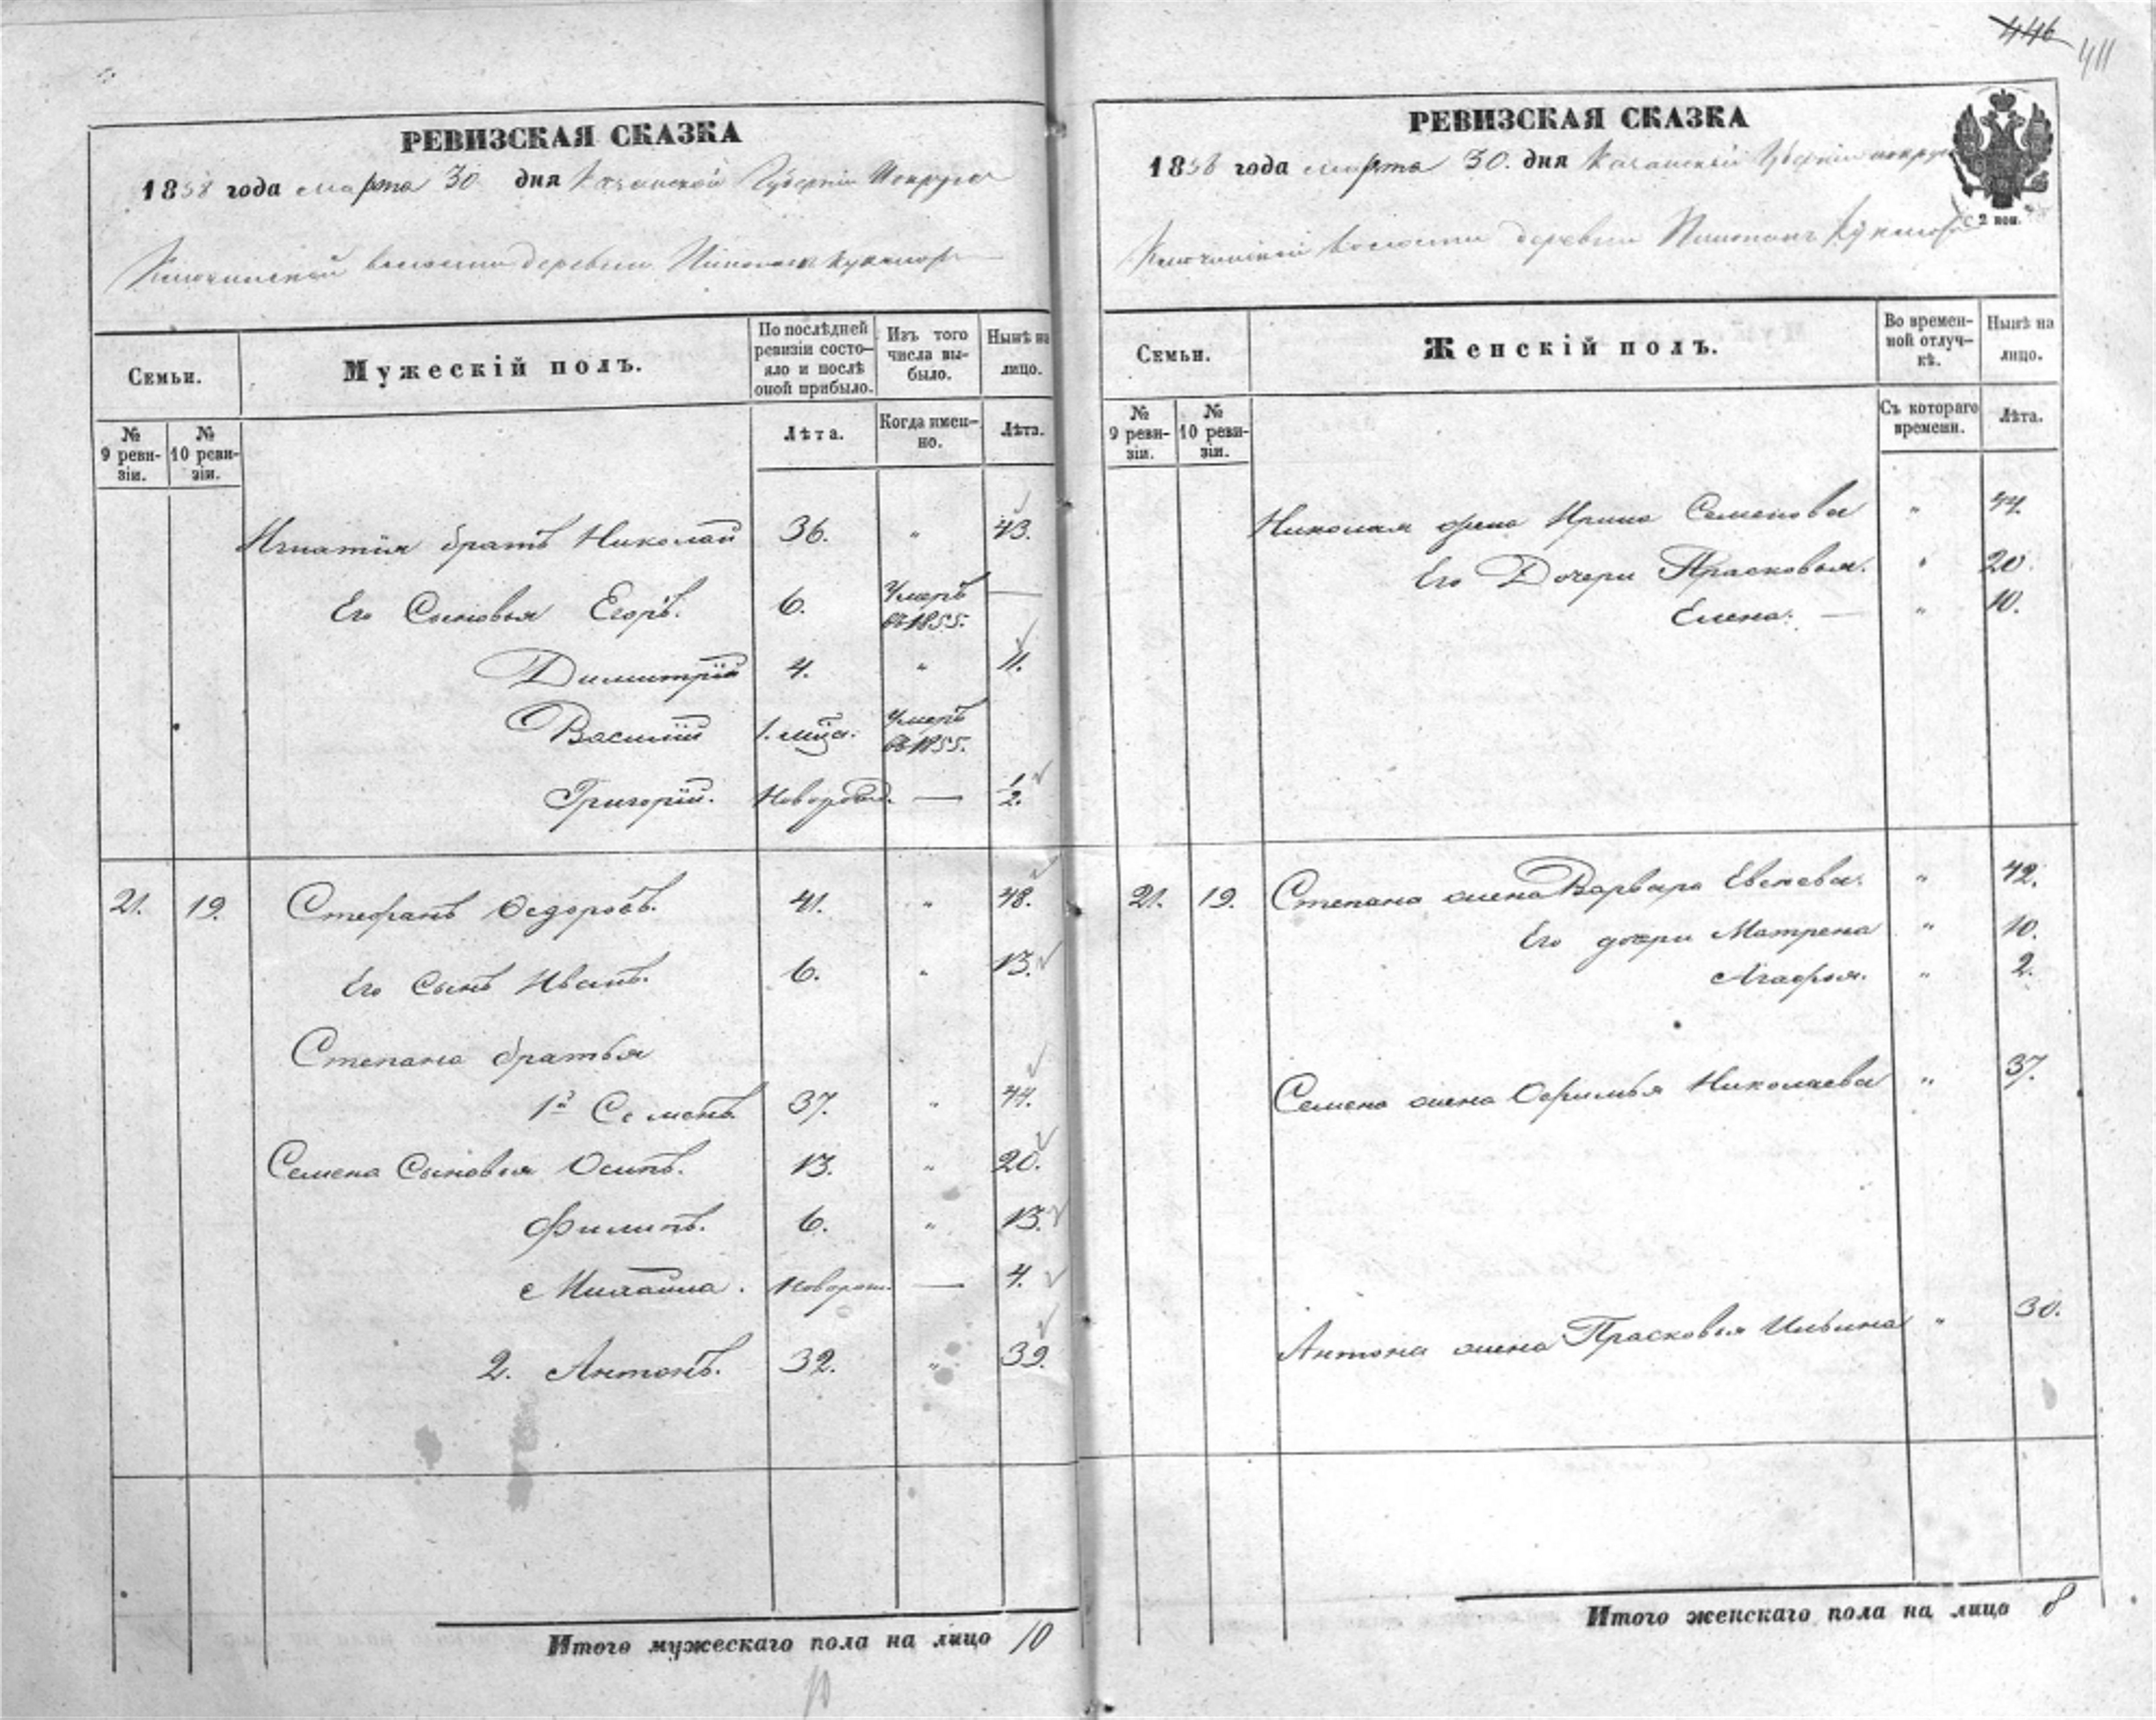 446 411
РЕВИЗСКАЯ СКАЗКА
1858 года марта 30 дня Казанской Губернии И округа
волости деревни Кукмор
Семьи.
Мужескій полъ.
По послѣдней ревизіи состо-
яло и послѣ
оной прибыло.
Изъ того
числа вы-
было.
Нынѣ на
лицо.
№
9 реви-
зіи.
№
10 реви-
зіи.
Лѣта.
Когда имен-
но.
Лѣта.
Игнатія братъ Николай 36. " 43.
Его Сыновья Егоръ. 6. Умеръ въ 1855. —
Димитрій 4. " 11.
Василій 1. мѣца. Умеръ въ 1855.
Григорій. Новорожд. — 1/2.
21. 19. Стефанъ Ѳедоровъ. 41. " 48.
Его Сынъ Иванъ. 6. " 13.
Степана братья
1й Семенъ 37. " 44.
Семена Сыновья Осипъ. 13. " 20.
Филипъ. 6. " 13.
Михайла. Новорож. — 4.
2. Антонъ. 32. " 39.
Итого мужескаго пола на лицо 10
10
РЕВИЗСКАЯ СКАЗКА
1858 года марта 30. дня Казанской Губерніи округа
2 коп.
волости деревни Кукмор
Семьи.
Женскій полъ.
Во времен-
ной отлуч-
кѣ.
Нынѣ на
лицо.
№
9 реви-
зіи.
№
10 реви-
зіи.
Съ котораго
времени.
Лѣта.
Николая жена Ирина Семенова " 44.
Его Дочери Прасковья. " 20.
Елена. — " 10.
21. 19. Степана жена Варвара Евсеева. " 42.
Его дочери Матрена " 10.
Агафья. " 2.
Семена жена Офимья Николаева " 37.
Антона жена Прасковья Ильина " 30.
Итого женскаго пола на лицо 8